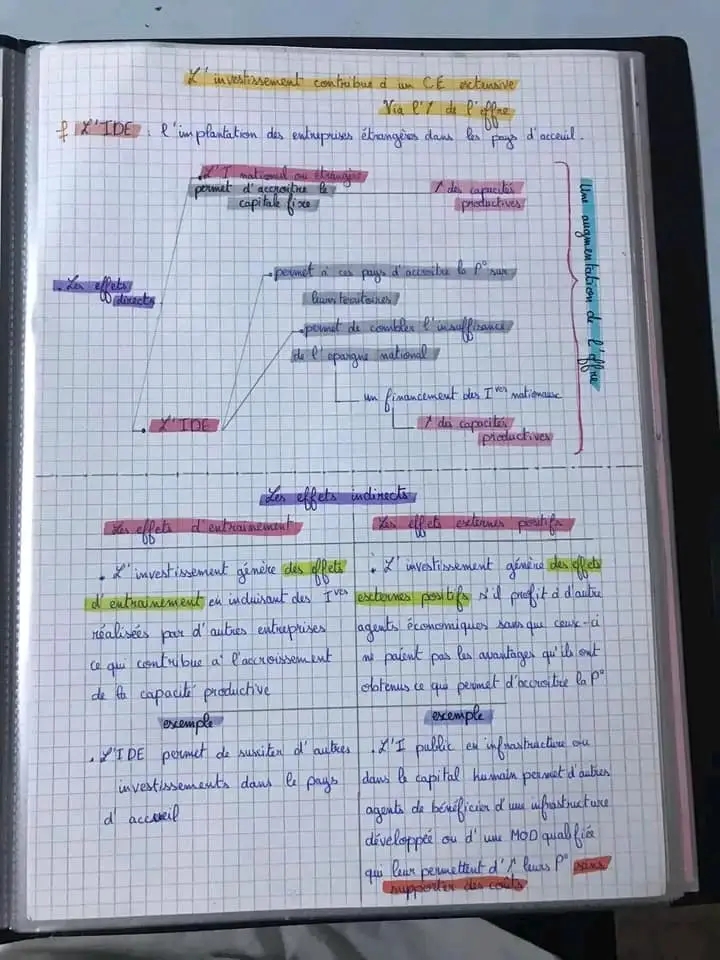 L'investissement contribue à un CE extensive
Via l'↗ de l'offre
L'IDE : l'implantation des entreprises étrangères dans les pays d'acceuil.
. L'I national ou étranger
permet d'accroitre le
capitale fixe
↗ des capacités
productives
. Les effets
directs
. permet à ces pays d'accroitre la P° sur
leurs territoires
. permet de combler l'insuffisance
de l'epargne national
un financement des Ives nationaux
↗ des capacités
productives
. L'IDE
Une augmentation de l'offre
Les effets indirects
Les effets d'entrainement
Les effets externes positifs
. L'investissement génère des effets
d'entrainement en induisant des Ives
réalisées par d'autres entreprises
ce qui contribue à l'accroissement
de la capacité productive
exemple
. L'IDE permet de susciter d'autres
investissements dans le pays
d'accueil
. L'investissement génère des effets
externes positifs s'il profit à d'autre
agents économiques sans que ceux-ci
ne paient pas les avantages qu'ils ont
obtenus ce qui permet d'accroitre la P°
exemple
. L'I public en infrastructure ou
dans le capital humain permet d'autres
agents de bénéficier d'une infrastructure
développée ou d'une MOD qualifiée
qui leur permettent d'↗ leurs P° sans
supporter des coûts